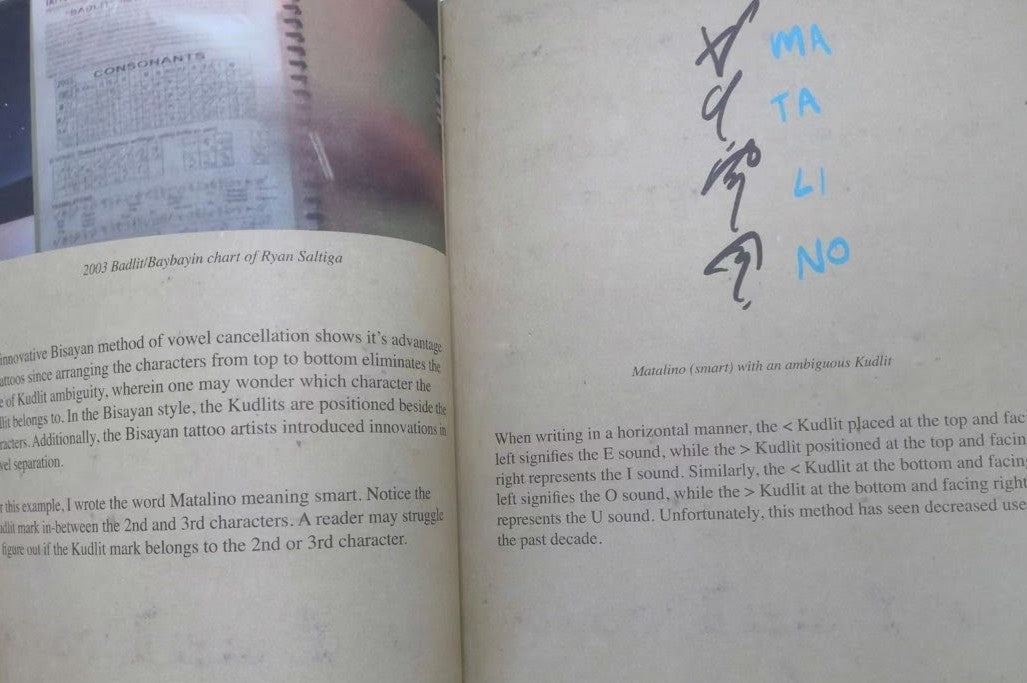 CONSONANTS
2003 Badlit/Baybayin chart of Ryan Saltiga
innovative Bisayan method of vowel cancellation shows it's advantage
attoos since arranging the characters from top to bottom eliminates the
e of Kudlit ambiguity, wherein one may wonder which character the
llit belongs to. In the Bisayan style, the Kudlits are positioned beside the
racters. Additionally, the Bisayan tattoo artists introduced innovations in
vel separation.
r this example, I wrote the word Matalino meaning smart. Notice the
udlit mark in-between the 2nd and 3rd characters. A reader may struggle
figure out if the Kudlit mark belongs to the 2nd or 3rd character.
ᜋ MA
ᜆ TA
ᜎᜒ LI
ᜈᜓ NO
Matalino (smart) with an ambiguous Kudlit
When writing in a horizontal manner, the < Kudlit placed at the top and fac
left signifies the E sound, while the > Kudlit positioned at the top and facin
right represents the I sound. Similarly, the < Kudlit at the bottom and facing
left signifies the O sound, while the > Kudlit at the bottom and facing right
represents the U sound. Unfortunately, this method has seen decreased use
the past decade.